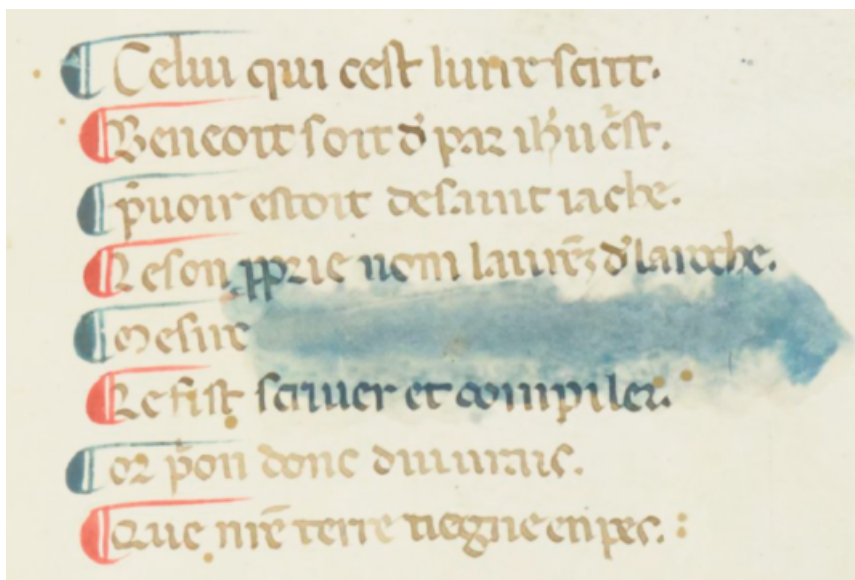 Celui qui cest liure scrit.
Beneoit soit d' par ihu c̄st.
p̄uoir estoit desaint iache.
Le son pprie nom laur̄ēz d' la roche.
Mesire
Le fist scriuer et compiler.
Or p̄on donc diu urais.
Que nr̄e terre tiegne en pes. :